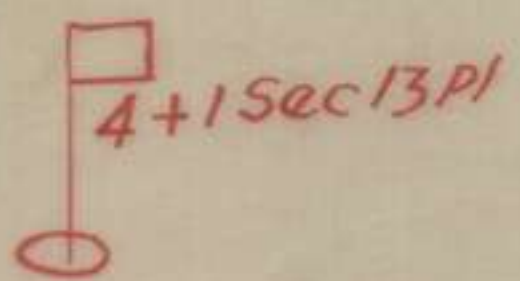 4 + 1 Sec 13 Pl